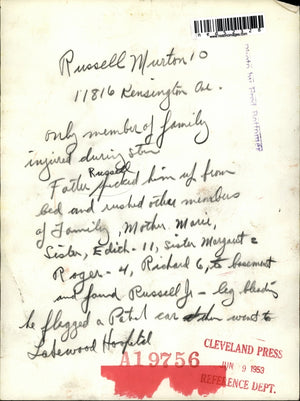 Russell Murton 10
11816 Kensington Av.
only member of family
injured during storm
Father Russell picked him up from
bed and rushed other members
of family, Mother, Marie,
Sister, Edith - 11, sister Margaret 2
Roger - 4, Richard 6, to basement
and found Russell Jr - leg bleeding
he flagged a Patrol car then went to
Lakewood Hospital
A19756
CLEVELAND PRESS
JUN 9 1953
REFERENCE DEPT.